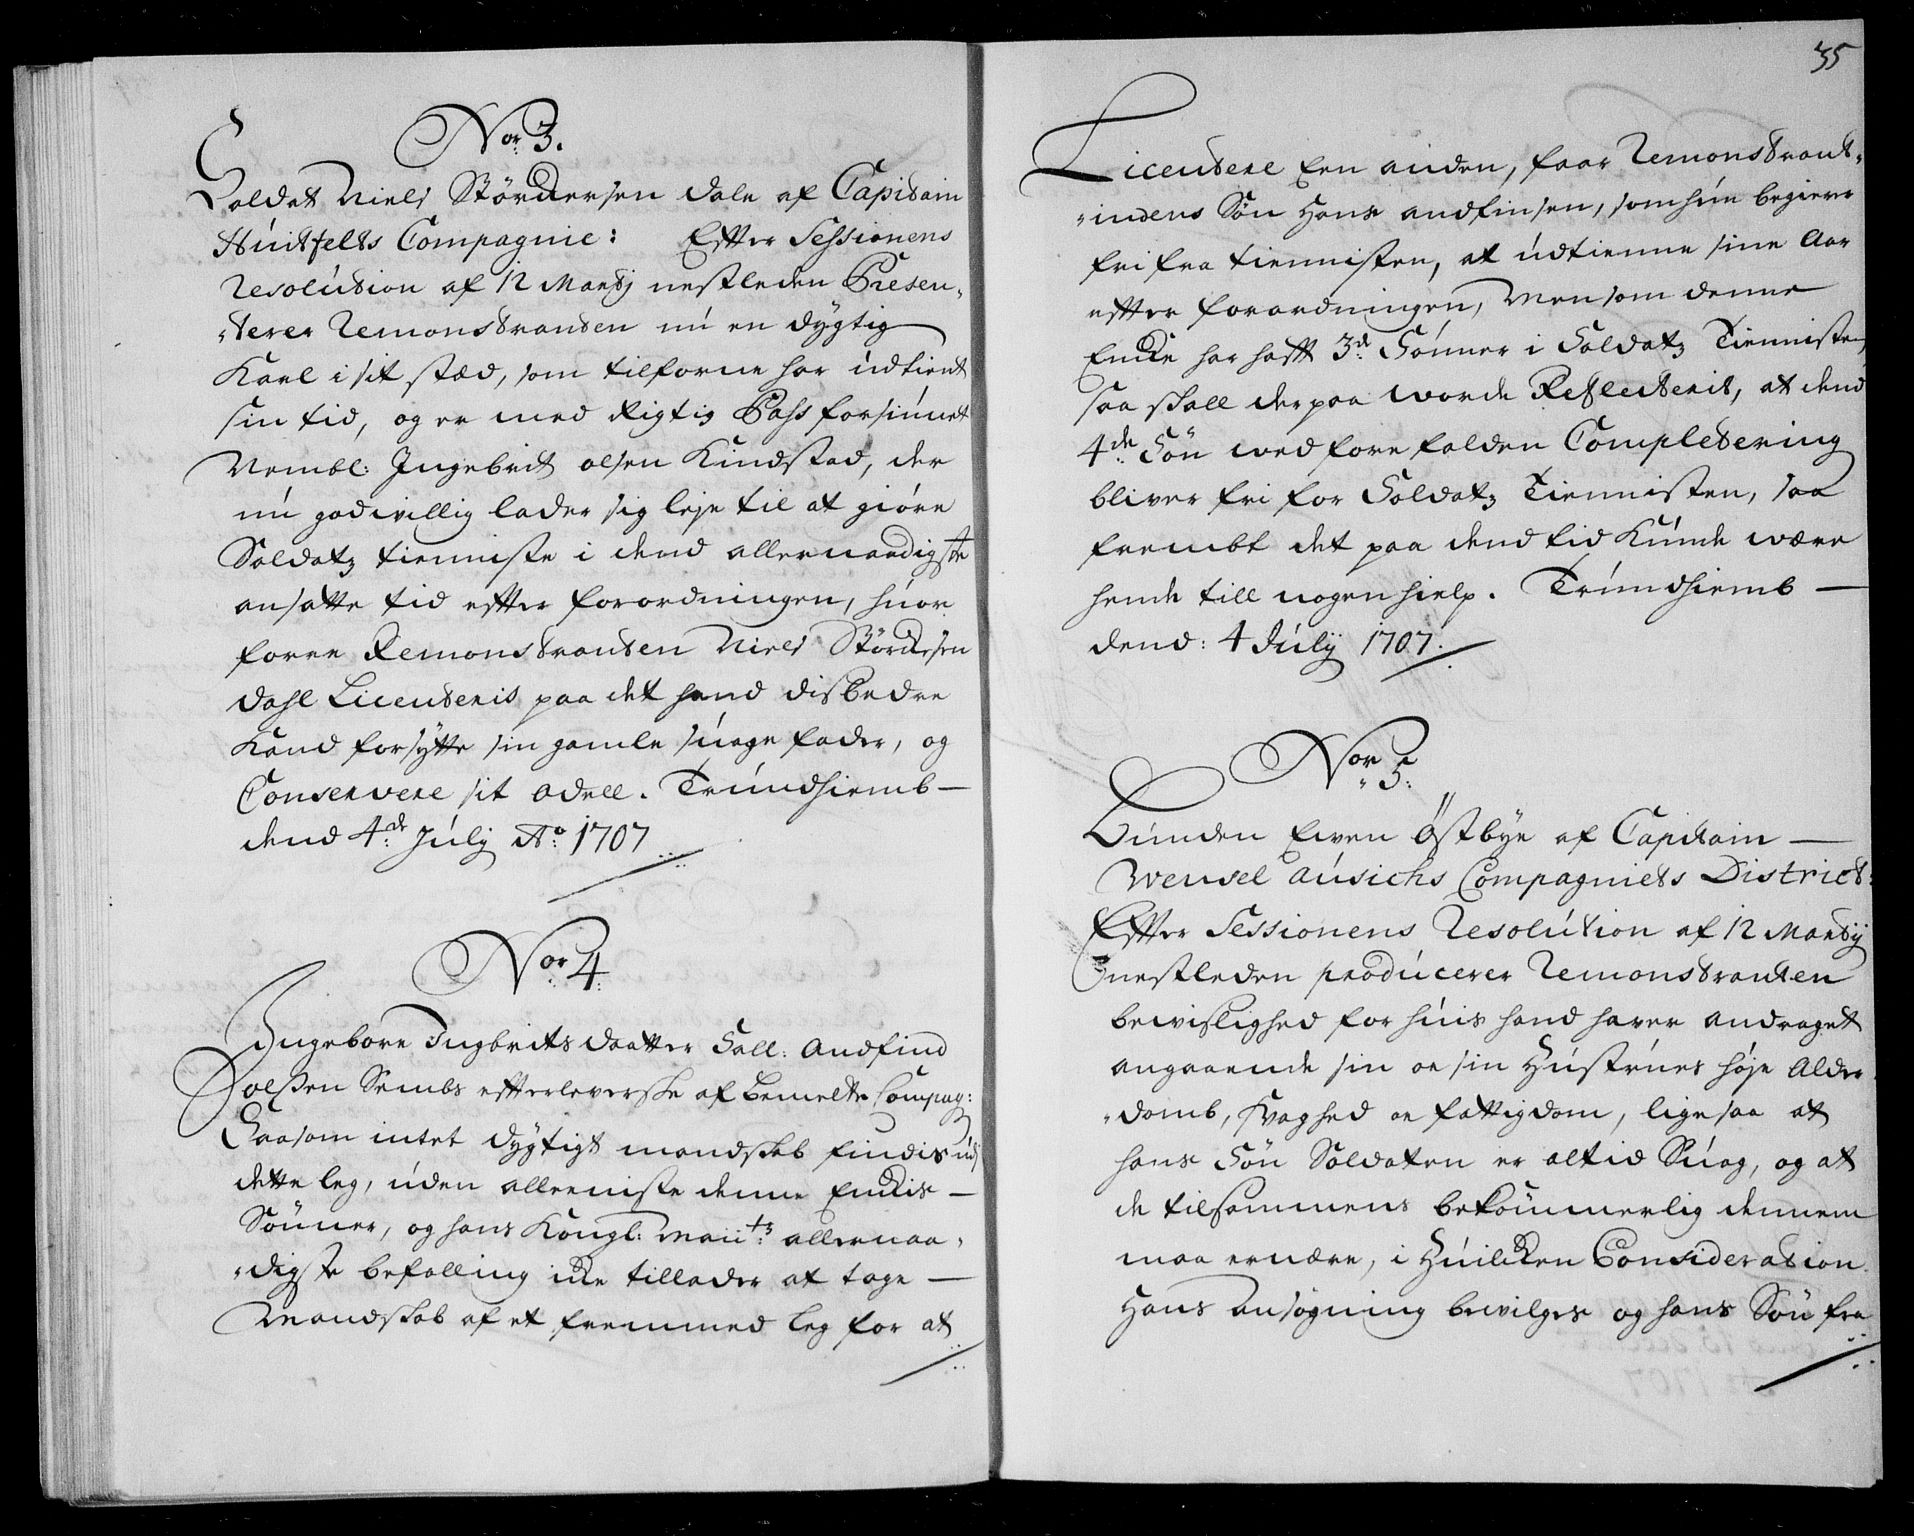 Nor 3.
Soldat Niels Störckersen Dale af Capitain
Húitfelts Compagnie: Effter Sessionens
Resolútion af 12 Martij nestleden Præsen„
„terer Remonstranten nú en dygtig
Karl i sit stæd, som tilforne har údtient
sin tid, og er med Rigtig Pass forsiúnet
Nembl: Ingebrit olsen Kindstad, der
nú godvillig lader sig leje til at giöre
Soldatz tienniste i dend allernaadigste
ansatte tid effter forordningen, húor
forre Remonstranten Niels Störckersen
dahl Licenteris paa det hand disbedre
Kand forsÿtte sin gamle súage fader, og
Conservere sit odell. Trúndhiemb —
dend 4de Júlij Ao 1707
Nor 4
Ingebore Ingbrits daatter Sall: Andfind
Joelßen Sembs effterleverske af bemelte Compag:
Saasom intet dygtigt mandskab findis údj
dette leg, úden alleeniste denne Enckis —
Sönner, og hans Kongl: Maiitz allernaa„
„digste befalling icke tillader at tage —
Mandskab af et fremmed leg for at
35
Licentere Een anden, faar Remonstrant„
„indens Sön Hans Andfinsen, som hún begierer
fri fra tiennisten, at údtienne sine Aar
effter forordningen, Men som denne
Encke har hafft 3de Sönner i Soldatz Tiennisten,
saa skall derpaa worde Reflecterit, at dend
4de Sön wed fore falden Completering
bliver fri for Soldatz Tiennisten, saa
frembt det paa dend tid Kúnde være
hende till nogen hielp. Trúndhiemb —
dend: 4 Júlij 1707.
Nor 5:
Búnden Ewen Östbye af Capitain —
Wensel aúsichs Compagniets District:
Effter Sessionens Resolútion af 12 Martij
nestleden prodúcerer Remonstranten
bevislighed for húis hand haver andraget
angaaende sin oe sin Hústrúes höje Alder„
„domb, Svaghed oe fattigdom, lige saa at
hans Sön Soldaten er altid Súag, og at
de tilsammens bekömmerlig dennem
maa ernære, i Húilcken Consideration
Hans ansögning bevilges og hans Sön fra